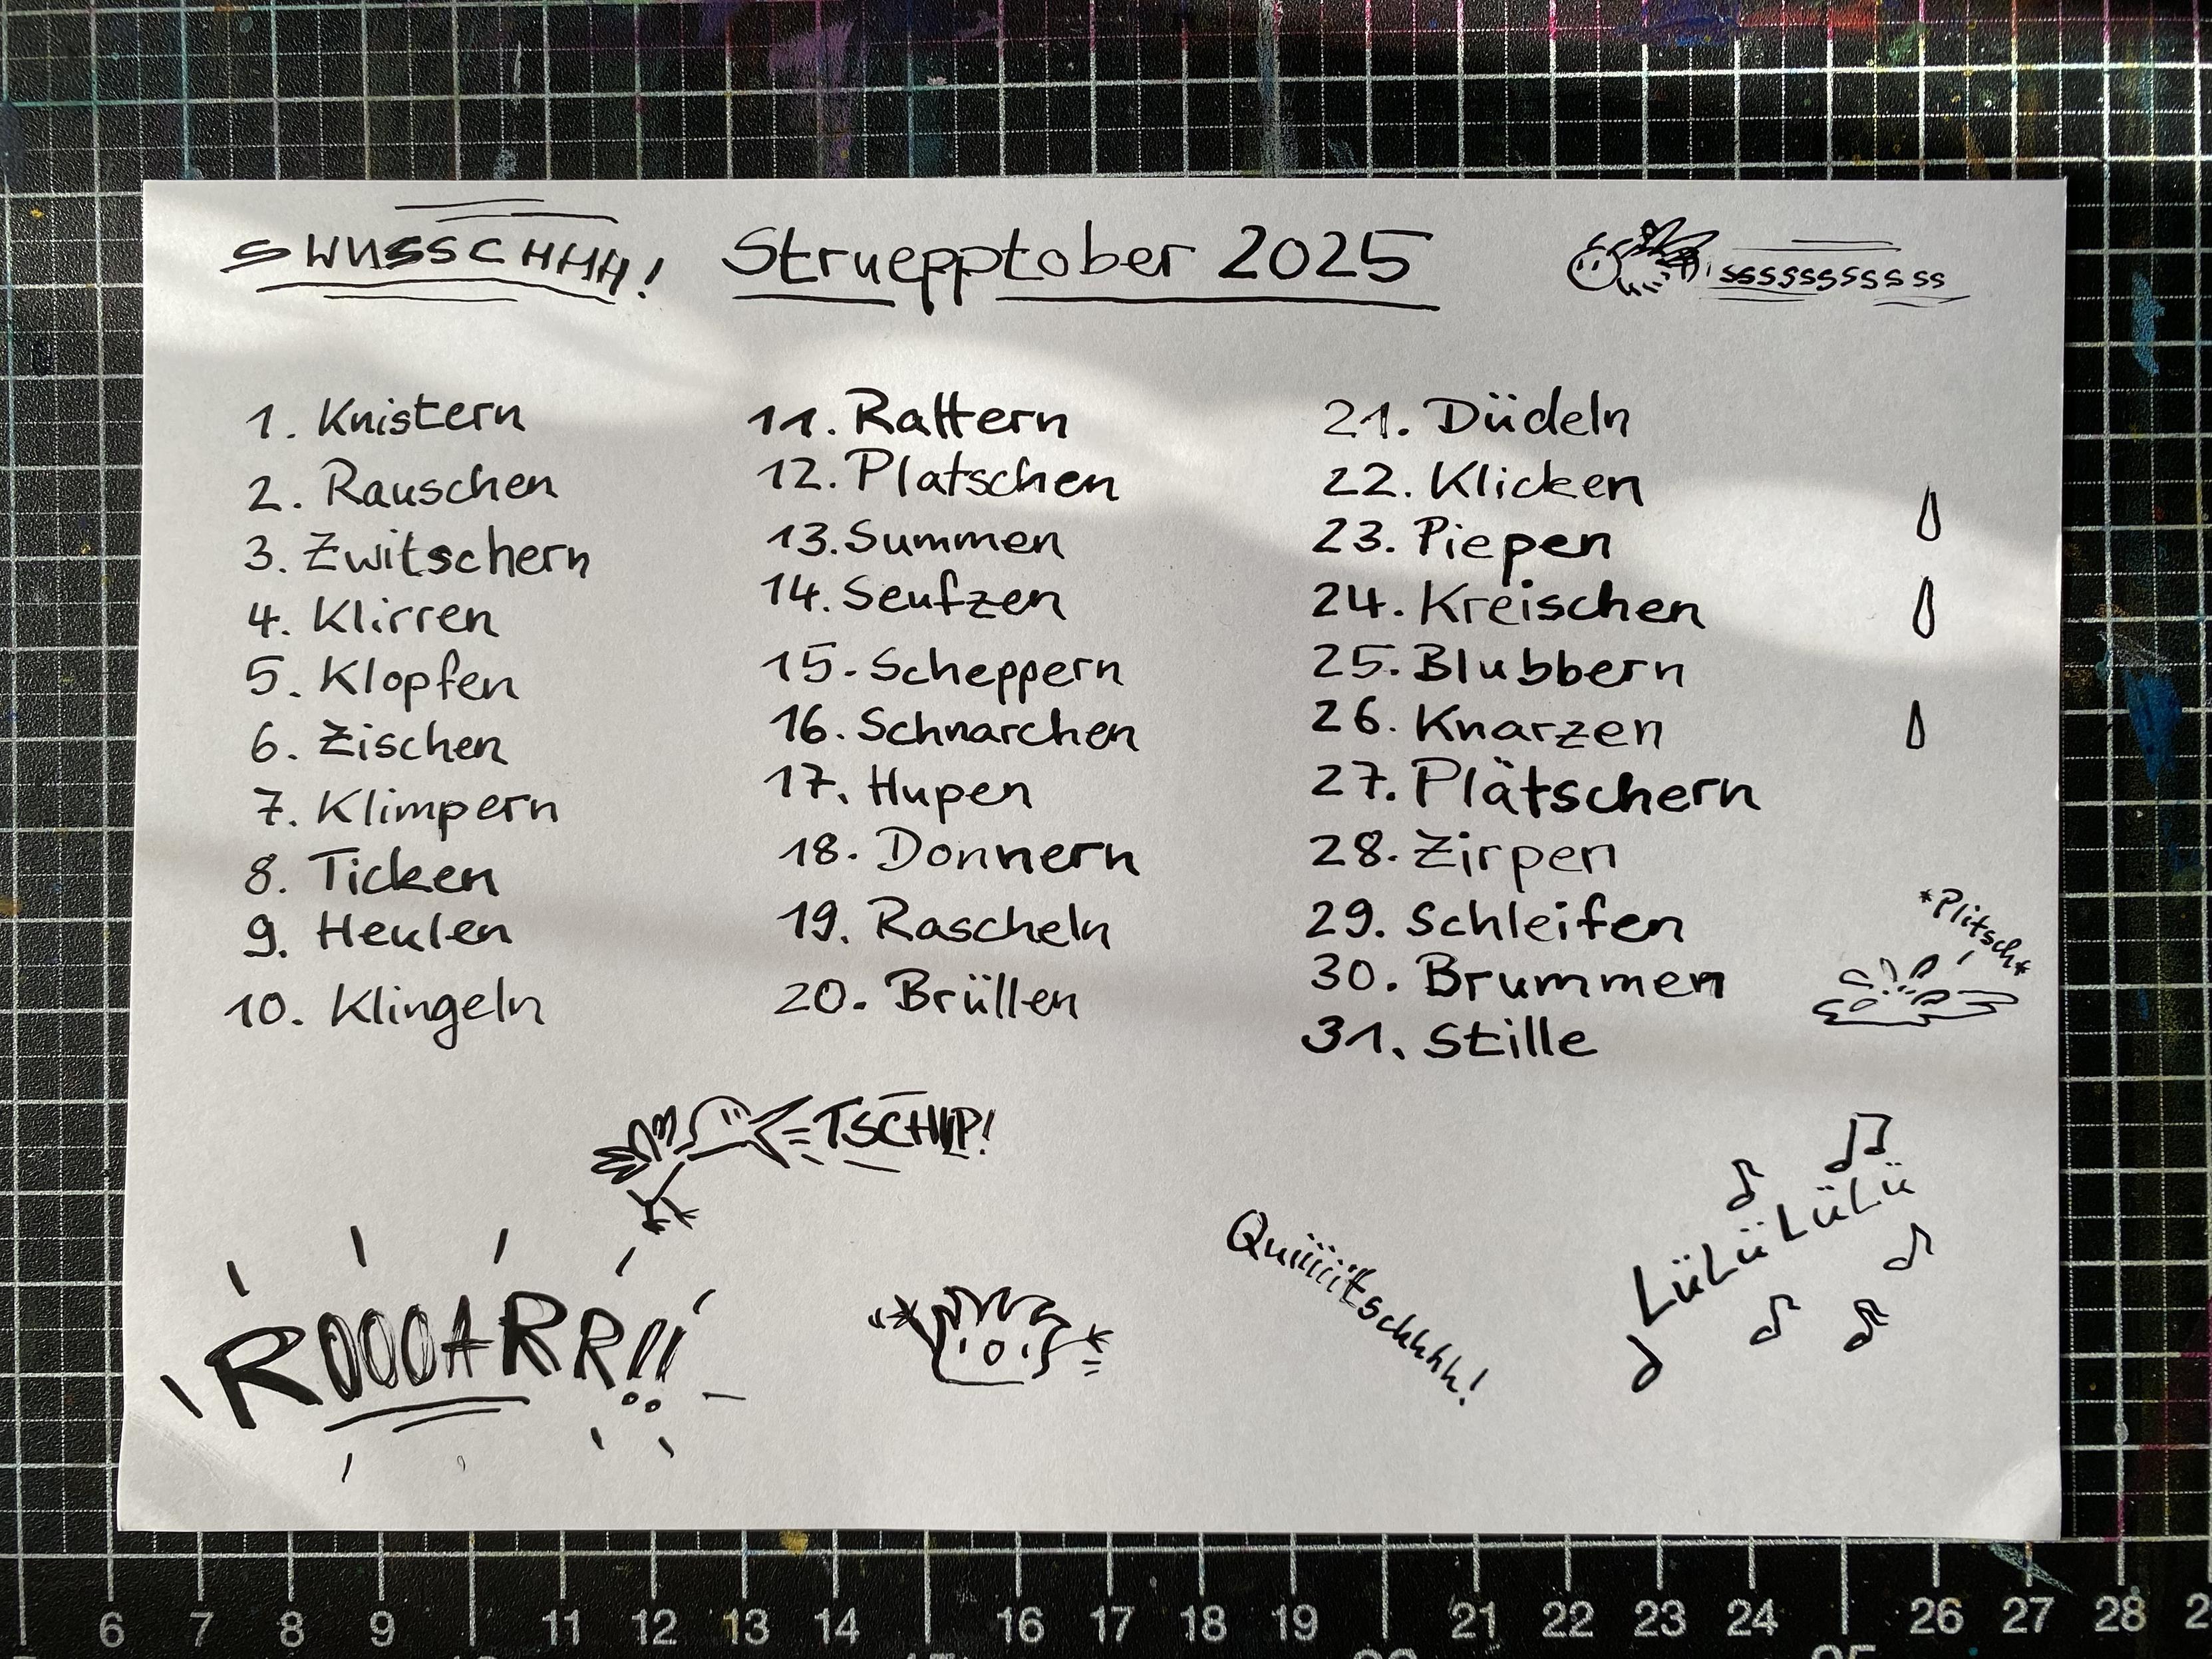 SWUSSCHHH!
Struepptober 2025
ssssssssssss
1. Knistern
2. Rauschen
3. Zwitschern
4. Klirren
5. Klopfen
6. Zischen
7. Klimpern
8. Ticken
9. Heulen
10. Klingeln
11. Rattern
12. Platschen
13. Summen
14. Seufzen
15. Scheppern
16. Schnarchen
17. Hupen
18. Donnern
19. Rascheln
20. Brüllen
21. Düdeln
22. Klicken
23. Piepen
24. Kreischen
25. Blubbern
26. Knarzen
27. Plätschern
28. Zirpen
29. Schleifen
30. Brummen
31. Stille
*Plitsch*
TSCHIP!
ROOOARR!!
Quiiiiitschhhh!
LüLüLüLü
6 7 8 9 10 11 12 13 14 15 16 17 18 19 20 21 22 23 24 25 26 27 28